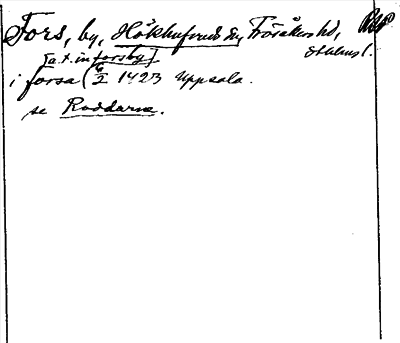 Fors, by, Hökhufvuds sn, Frösåkers hd,
Sthlms l.
[a.t. in forsby]
i forsa (6/2 1423 Uppsala.
se Roddarne.